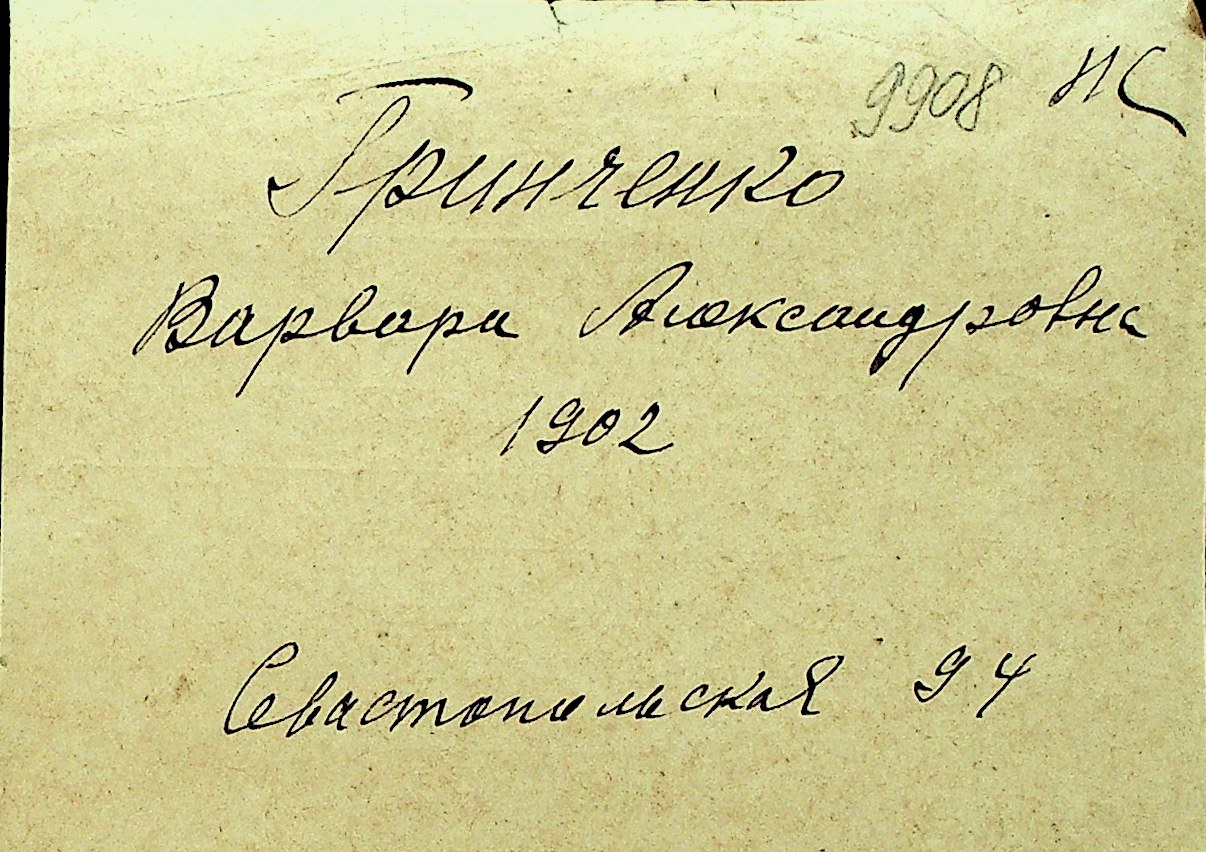 9908
Гринченко
Варвара Александровна
1902
Севастопольская 94